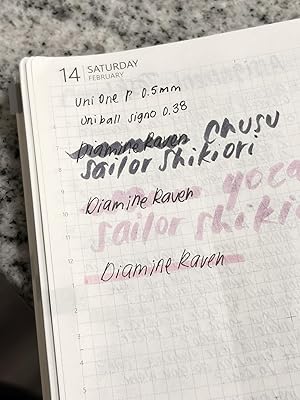 14 SATURDAY
FEBRUARY
uni one P 0.5mm
uniball signo 0.38
Diamine Raven chusu
sailor shikiori
Diamine Raven
sailor
Diamine Raven